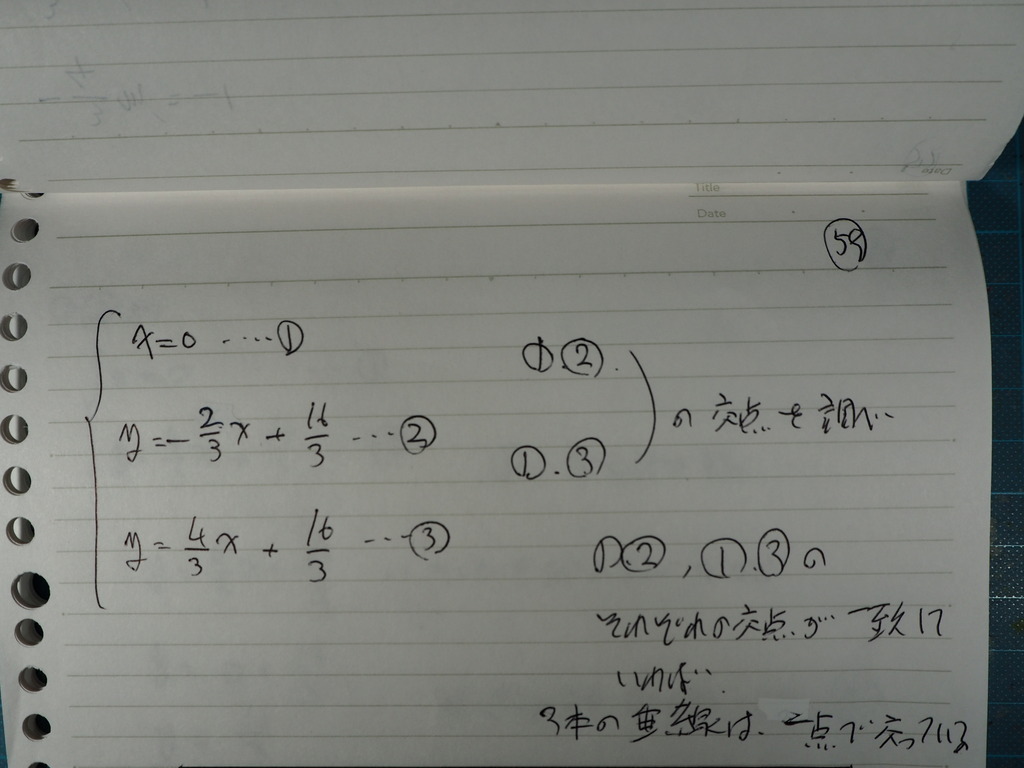 Title
Date
59
x=0 ‥‥①
y=-2/3x + 16/3 ‥‥②
y=4/3x + 16/3 ‥‥③
①②.
①.③
の交点を調べ‥
①②, ①.③の
それぞれの交点が一致して
いれば‥
3本の垂線は、一点で交っている